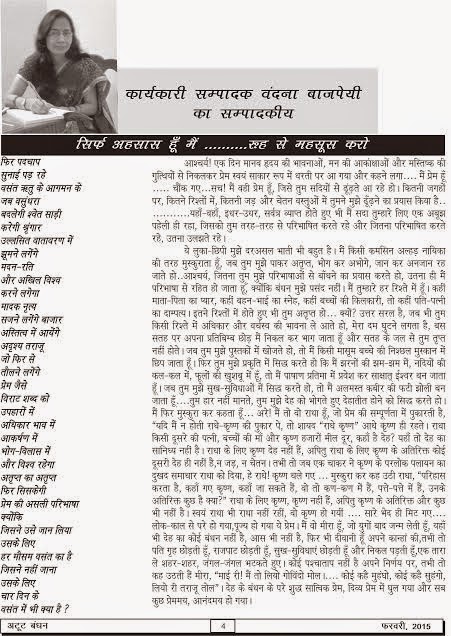 कार्यकारी सम्पादक वंदना बाजपेयी
का सम्पादकीय
सिर्फ अहसास हूँ मैं ..........रूह से महसूस करो
फिर पदचाप
सुनाई पड़ रहे
वसंत ऋतु के आगमन के
जब वसुंधरा
बदलेगी श्वेत साड़ी
करेगी श्रृंगार
उल्लसित वातावरण में
झूमने लगेंगे
मदन-रति
और अखिल विश्व
करने लगेगा
मादक नृत्य
सजने लगेंगे बाजार
अस्तित्व में आयेंगे
अदृश्य तराजू
जो फिर से
तौलने लगेंगे
प्रेम जैसे
विराट शब्द को
उपहारों में
अधिकार भाव में
आकर्षण में
भोग-विलास में
और विश्व रहेगा
अतृप्त का अतृप्त
फिर सिसकेगी
प्रेम की असली परिभाषा
क्योंकि
जिसने उसे जान लिया
उसके लिए
हर मौसम वसंत का है
जिसने नहीं जाना
उसके लिए
चार दिन के
वसंत में भी क्या है ?
आश्चर्य! एक दिन मानव हृदय की भावनाओं, मन की आकांक्षाओं और मस्तिष्क की
गुत्थियों से निकलकर प्रेम स्वयं साकार रूप में धरती पर आ गया और कहने लगा.... मैं प्रेम हूँ
..... चौंक गए...सच! मैं वही प्रेम हूँ, जिसे तुम सदियों से ढूंढते आ रहे हो। कितनी जगहों
पर, कितने रिश्तों में, कितनी जड़ और चेतन वस्तुओं में तुमने मुझे ढूँढने का प्रयास किया है...
...........यहाँ-वहाँ, इधर-उधर, सर्वत्र व्याप्त होते हुए भी मैं सदा तुम्हारे लिए एक अबूझ
पहेली ही रहा, जिसको तुम तरह-तरह से परिभाषित करते रहे और जितना परिभाषित करते
रहे, उतना उलझते रहे।
ये लुका-छिपी मुझे दरअसल भाती भी बहुत है। मैं किसी कमसिन अल्हड़ नायिका
की तरह मुस्कुराता हूँ, जब तुम मुझे पाकर अतृप्त, भोग कर अभोगे, जान कर अनजान रह
जाते हो..आश्चर्य, जितना तुम मुझे परिभाषाओं से बाँधने का प्रयास करते हो, उतना ही मैं
परिभाषा से रहित हो जाता हूँ, क्योंकि बंधन मुझे पसंद नहीं। मैं तुम्हारे हर रिश्ते में हूँ। कहीं
माता-पिता का प्यार, कहीं बहन-भाई का स्नेह, कहीं बच्चों की किलकारी, तो कहीं पति-पत्नी
का दाम्पत्य। इतने रिश्तों में होते हुए भी तुम अतृप्त हो... क्यों? उत्तर सरल है, जब भी तुम
किसी रिश्ते में अधिकार और वर्चस्व की भावना ले आते हो, मेरा दम घुटने लगता है, बस
सतह पर अपना प्रतिबिम्ब छोड़ मैं निकल कर भाग जाता हूँ और सतह के जल से तुम तृप्त
नहीं होते। जब तुम मुझे पुस्तकों में खोजते हो, तो मैं किसी मासूम बच्चे की निश्छल मुस्कान में
छिप जाता हूँ। फिर तुम मुझे प्रकृति में सिद्ध करते हो कि मैं झरनों की झम-झम में, नदियों की
कल-कल में, फूलों की खुशबू में हूँ, तो मैं पाषाण प्रतिमा में प्रवेश कर साक्षात् ईश्वर बन जाता
हूँ। जब तुम मुझे सुख-सुविधाओं में सिद्ध करते हो, तो मैं अलमस्त कबीर की फटी झोली बन
जाता हूँ....तुम हार नहीं मानते, तुम मुझे देह को भोगते हुए देहातीत होने को सिद्ध करते हो।
मैं फिर मुस्कुरा कर कहता हूँ... अरे! मैं तो वो राधा हूँ, जो प्रेम की सम्पूर्णता में पुकारती है,
"यदि मैं न होती राधे-कृष्ण की पुकार पे, तो शायद "राधे कृष्ण" आधे कृष्ण ही रहते। राधा
किसी दूसरे की पत्नी, बच्चों की माँ और कृष्ण हजारों मील दूर, कहाँ है देह? यहाँ तो देह का
सानिध्य नहीं है। राधा के लिए कृष्ण देह नहीं हैं, अपितु राधा के लिए कृष्ण के अतिरिक्त कोई
दूसरी देह ही नहीं है,न जड़, न चेतन। तभी तो जब एक चाकर ने कृष्ण के परलोक पलायन का
दुखद समाचार राधा को दिया, हे राधे! कृष्ण चले गए ... मुस्कुरा कर कह उठी राधा, "परिहास
करता है, कहाँ गए कृष्ण, कहाँ जा सकते हैं, वो तो कण-कण में हैं, पत्ते-पत्ते में हैं, उनके
अतिरिक्त कुछ है क्या?" राधा के लिए, कृष्ण कृष्ण नहीं हैं, अपितु कृष्ण के अतिरिक्त और कुछ
भी नहीं है। स्वयं राधा भी राधा नहीं रहीं, वो कृष्ण हो गयीं .... सारे भेद ही मिट गए....
लोक-काल से परे हो गया,पूज्य हो गया ये प्रेम। मैं वो मीरा हूँ, जो युगों बाद जन्म लेती हूँ, यहाँ
भी देह का कोई बंधन नहीं है, आस भी नहीं है, फिर भी दीवानी हूँ अपने कान्हां की,तभी तो
पति गृह छोड़ती हूँ, राजपाट छोड़ती हूँ, सुख-सुविधाएं छोड़ती हूँ और निकल पड़ती हूँ,एक तारा
ले शहर-शहर, जंगल-जंगल भटकते हुए। कोई पश्चाताप नहीं है अपने निर्णय पर, तभी तो
कह उठती हैं मीरा, "माई री! मैं तो लियो गोविंदो मोल।.... कोई कहै मुहंघो, कोई कहै सुहंगो,
लियो री तराजू तोल"। देह के बंधन के परे शुद्ध सात्विक प्रेम, दिव्य प्रेम में घुल गया और सब
कुछ प्रेममय, आनंदमय हो गया।
अटूट बंधन
4
फरवरी, 2015